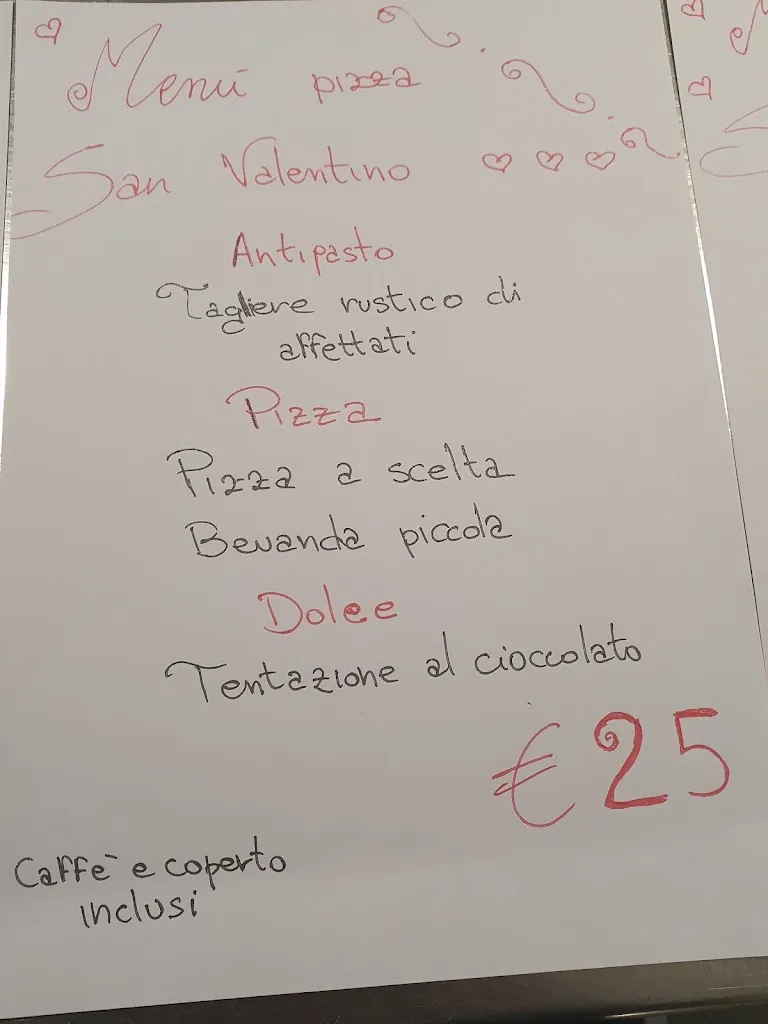 Menù pizza
San Valentino
Antipasto
Tagliere rustico di
affettati
Pizza
Pizza a scelta
Bevanda piccola
Dolce
Tentazione al cioccolato
€ 25
Caffè e coperto
inclusi